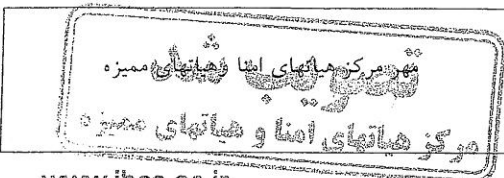 مهر مرکز هیاتهای امنا وهیاتهای ممیزه
تصویب شد
مرکز هیاتهای امنا و هیاتهای ممیزه